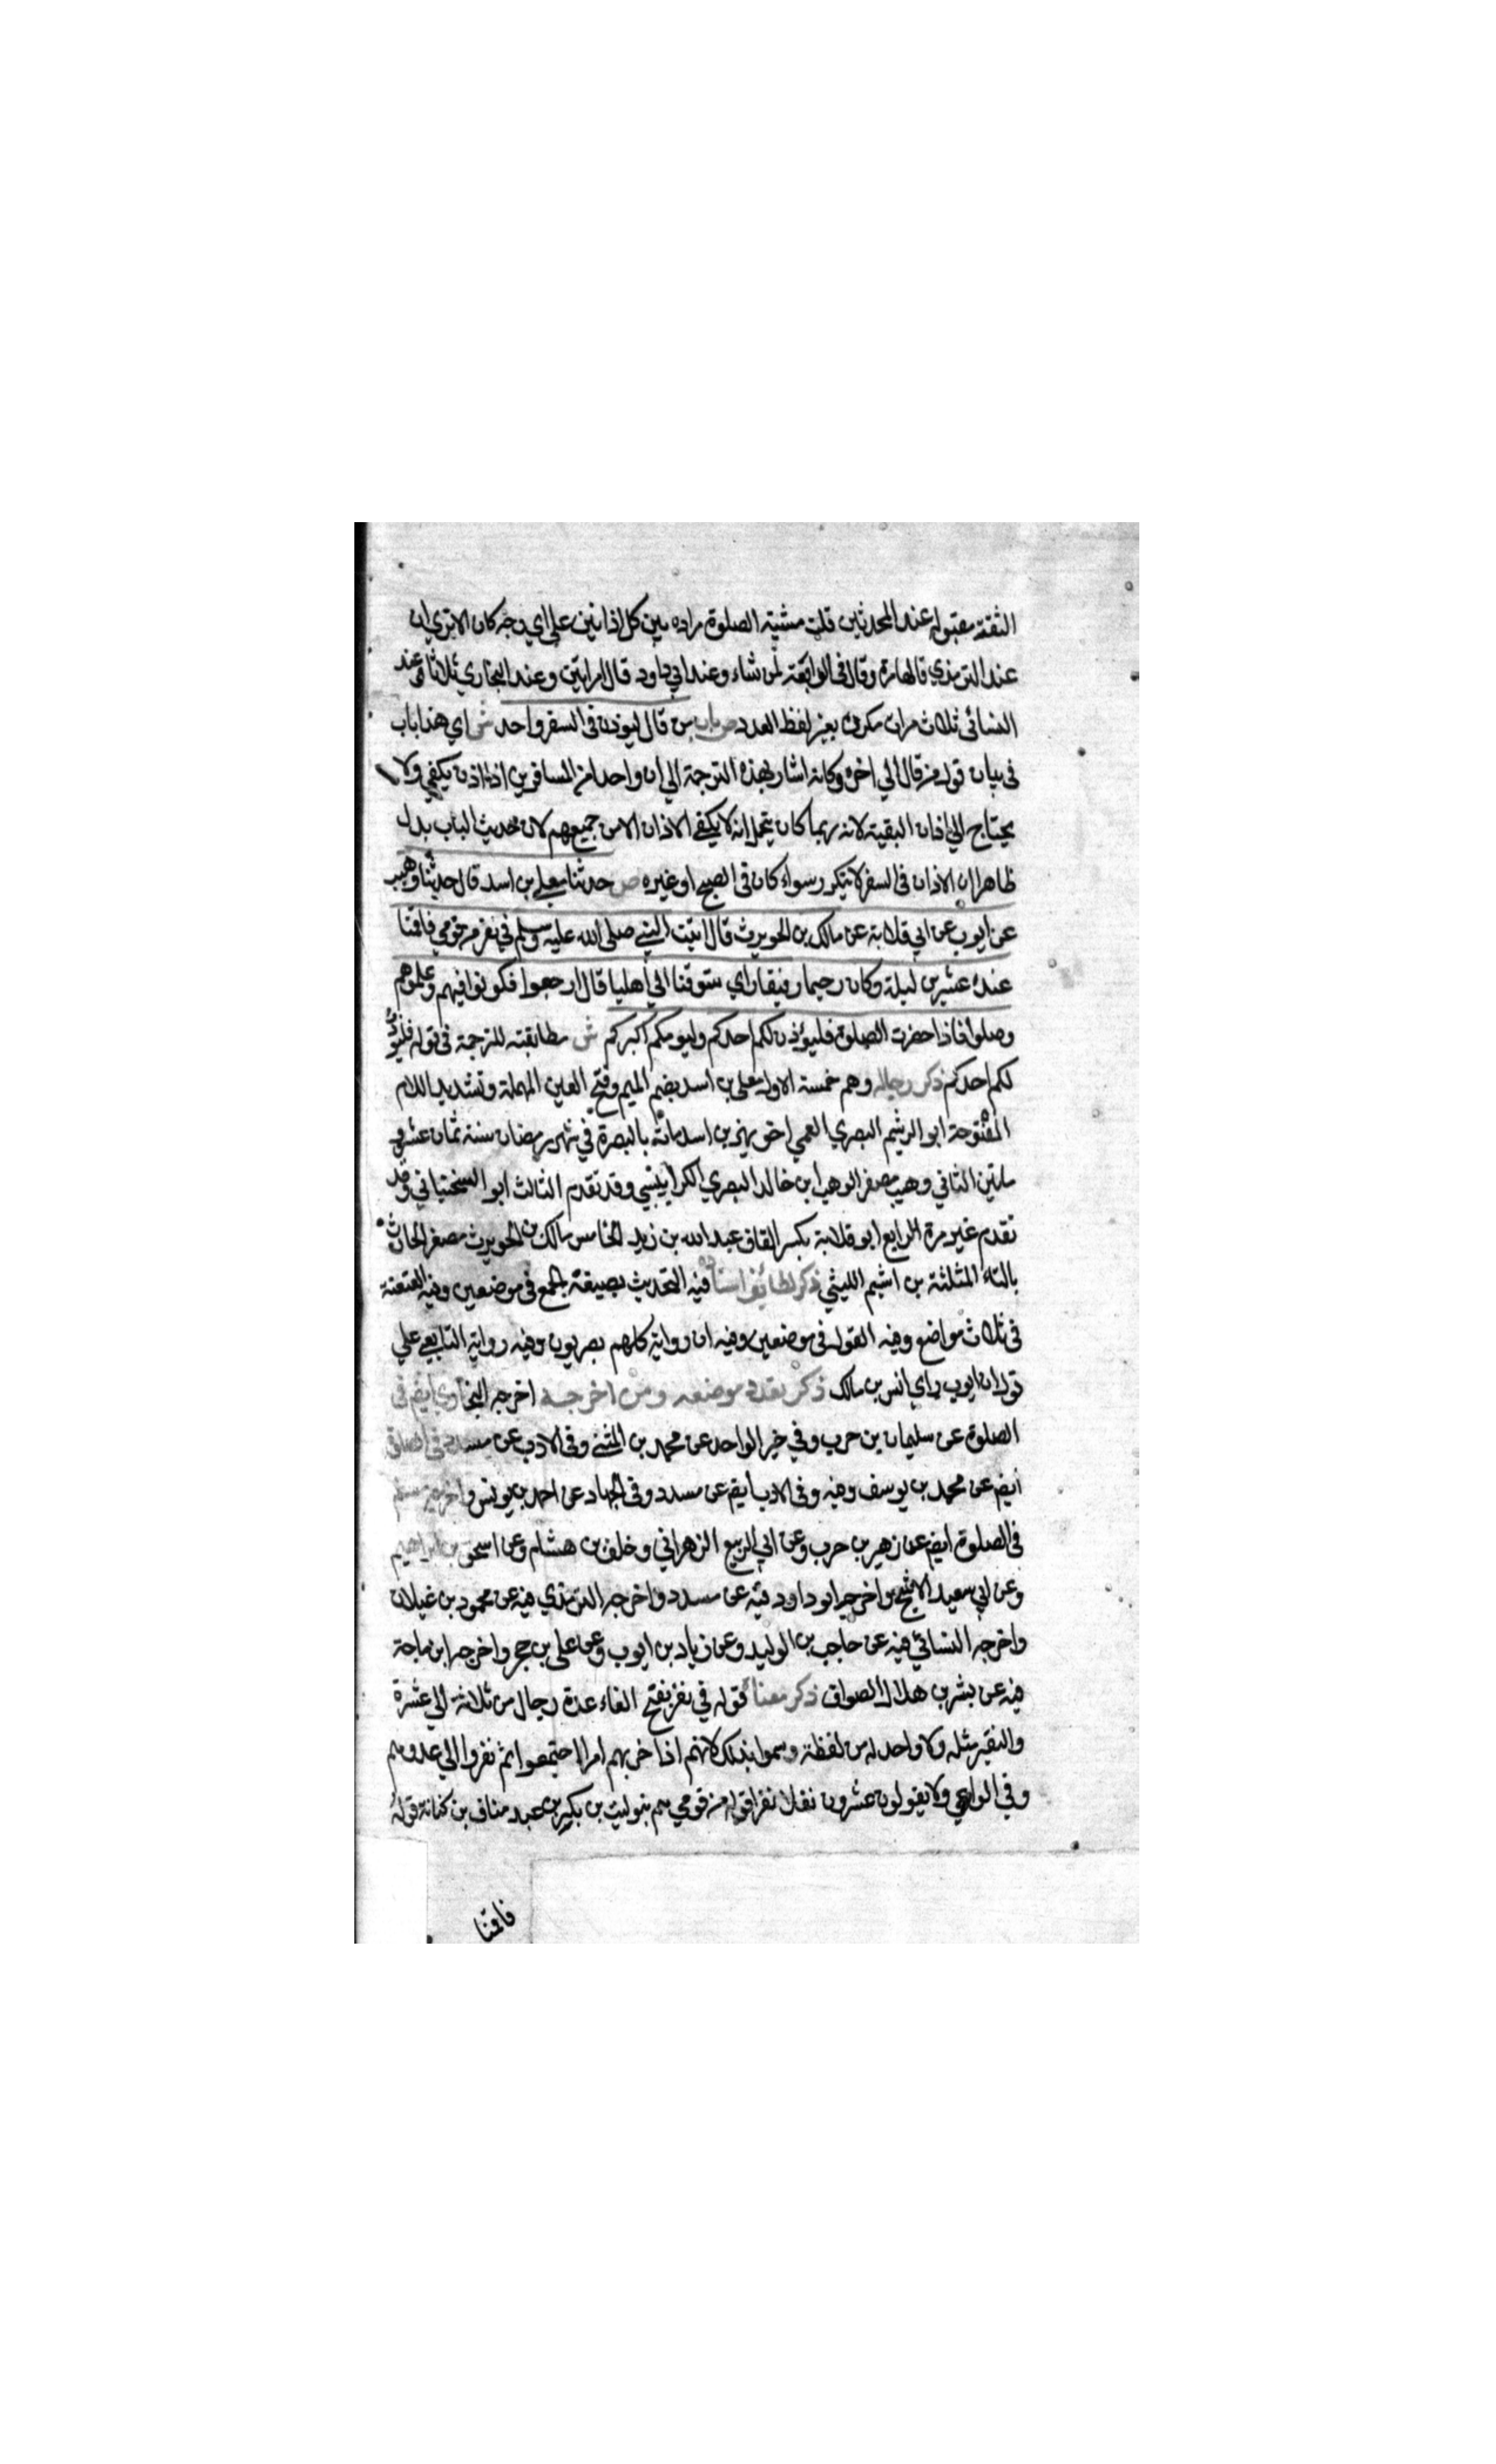 الثقة مقبولة عند المحدثين قلت مشية الصلوة مراده بين كل اذانين على اي وجه كان الا تري ان
عند الترمذي قالها مرة وقال في الرابعة لمن شاء وعند ابي داود قال مرتين وعند البخاري ثلاثا وعند
النسائي ثلاث مرات مكررة بغير لفظ العدد ص باب من قال ليوذن في السفر واحد ش اي هذا باب
في بيان قول من قال الي اخره وكانه اشار بهذه الترجمة الي ان واحدا من المسافرين اذا اذن يكفي ولا
يحتاج الي اذان البقية لانه ربما كان يتخيل انه لا يكفي الاذان الا من جميعهم لان حديث الباب يدل
ظاهرا ان الاذان في السفر لا يتكرر سواء كان في الصبح او غيره ص حدثنا معلي بن اسد قال حدثنا وهيب
عن ايوب عن ابي قلابة عن مالك بن الحويرث قال اتيت النبي صلى الله عليه وسلم في نفر من قومي فاقمنا
عنده عشرين ليلة وكان رحيما رفيقا راي شوقنا الي اهلينا قال ارجعوا فكونوا فيهم وعلموهم
وصلوا فاذا حضرت الصلوة فليوذن لكم احدكم وليومكم اكبركم ش مطابقته للترجمة في قوله فليوذن
لكم احدكم ذكر رجاله وهم خمسة الاول معلى بن اسد بضم الميم وفتح العين المهملة وتشديد اللام
المفتوحة ابو الهيثم البصري العمي اخو بهز بن اسد مات بالبصرة في شهر رمضان سنة ثمان عشرة
مايتين الثاني وهيب مصغر الوهب ابن خالد البصري الكرابيسي وقد تقدم الثالث ابو السختياني وقد
تقدم غير مرة الرابع ابو قلابة بكسر القاف عبد الله بن زيد الخامس مالك بن الحويرث مصغر الحارث
بالثاء المثلثة بن اشيم الليثي ذكر لطائف اسناده فيه التحديث بصيغة الجمع في موضعين وفيه العنعنة
في ثلاث مواضع وفيه القول في موضعين وفيه ان رواية كلهم بصريون وفيه رواية التابعي علي
قول ان ايوب راي انس بن مالك ذكر تعدد موضعه ومن اخرجه اخرجه البخاري ايضم في
الصلوة عن سليمان بن حرب وفي خبر الواحد عن محمد بن المثني وفي الادب عن مسدد في الصلوة
ايضم عن محمد بن يوسف وفيه وفي الادب ايضم عن مسدد وفي الجهاد عن احمد بن يونس واخرجه مسلم
في الصلوة ايضم عن زهير بن حرب وعن ابي الربيع الزهراني وخلف بن هشام وعن اسحق بن ابراهيم
وعن ابي سعيد الاشج واخرجه ابو داود فيه عن مسدد واخرجه الترمذي فيه عن محمود بن غيلان
واخرجه النسائي فيه عن حاجب بن الوليد وعن زياد بن ايوب وعن علي بن حجر واخرجه ابن ماجة
فيه عن بشر بن هلال الصواف ذكر معناه قوله في نفر بفتح الفاء عدة رجال من ثلاثة الي عشرة
والنفير مثله ولا واحد له من لفظة وسموا بذلك لانهم اذا حزبهم امر اجتمعوا ثم نفروا الي عدوهم
وفي الواعي ولا يقولون عشرون نفرا قوله من قومي هم بنو ليث بن بكير بن عبد مناف بن كنانة قوله
فاقمنا